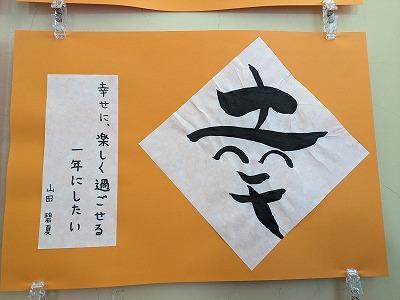 幸
幸せに、楽しく過ごせる
一年にしたい
山田 碧夏